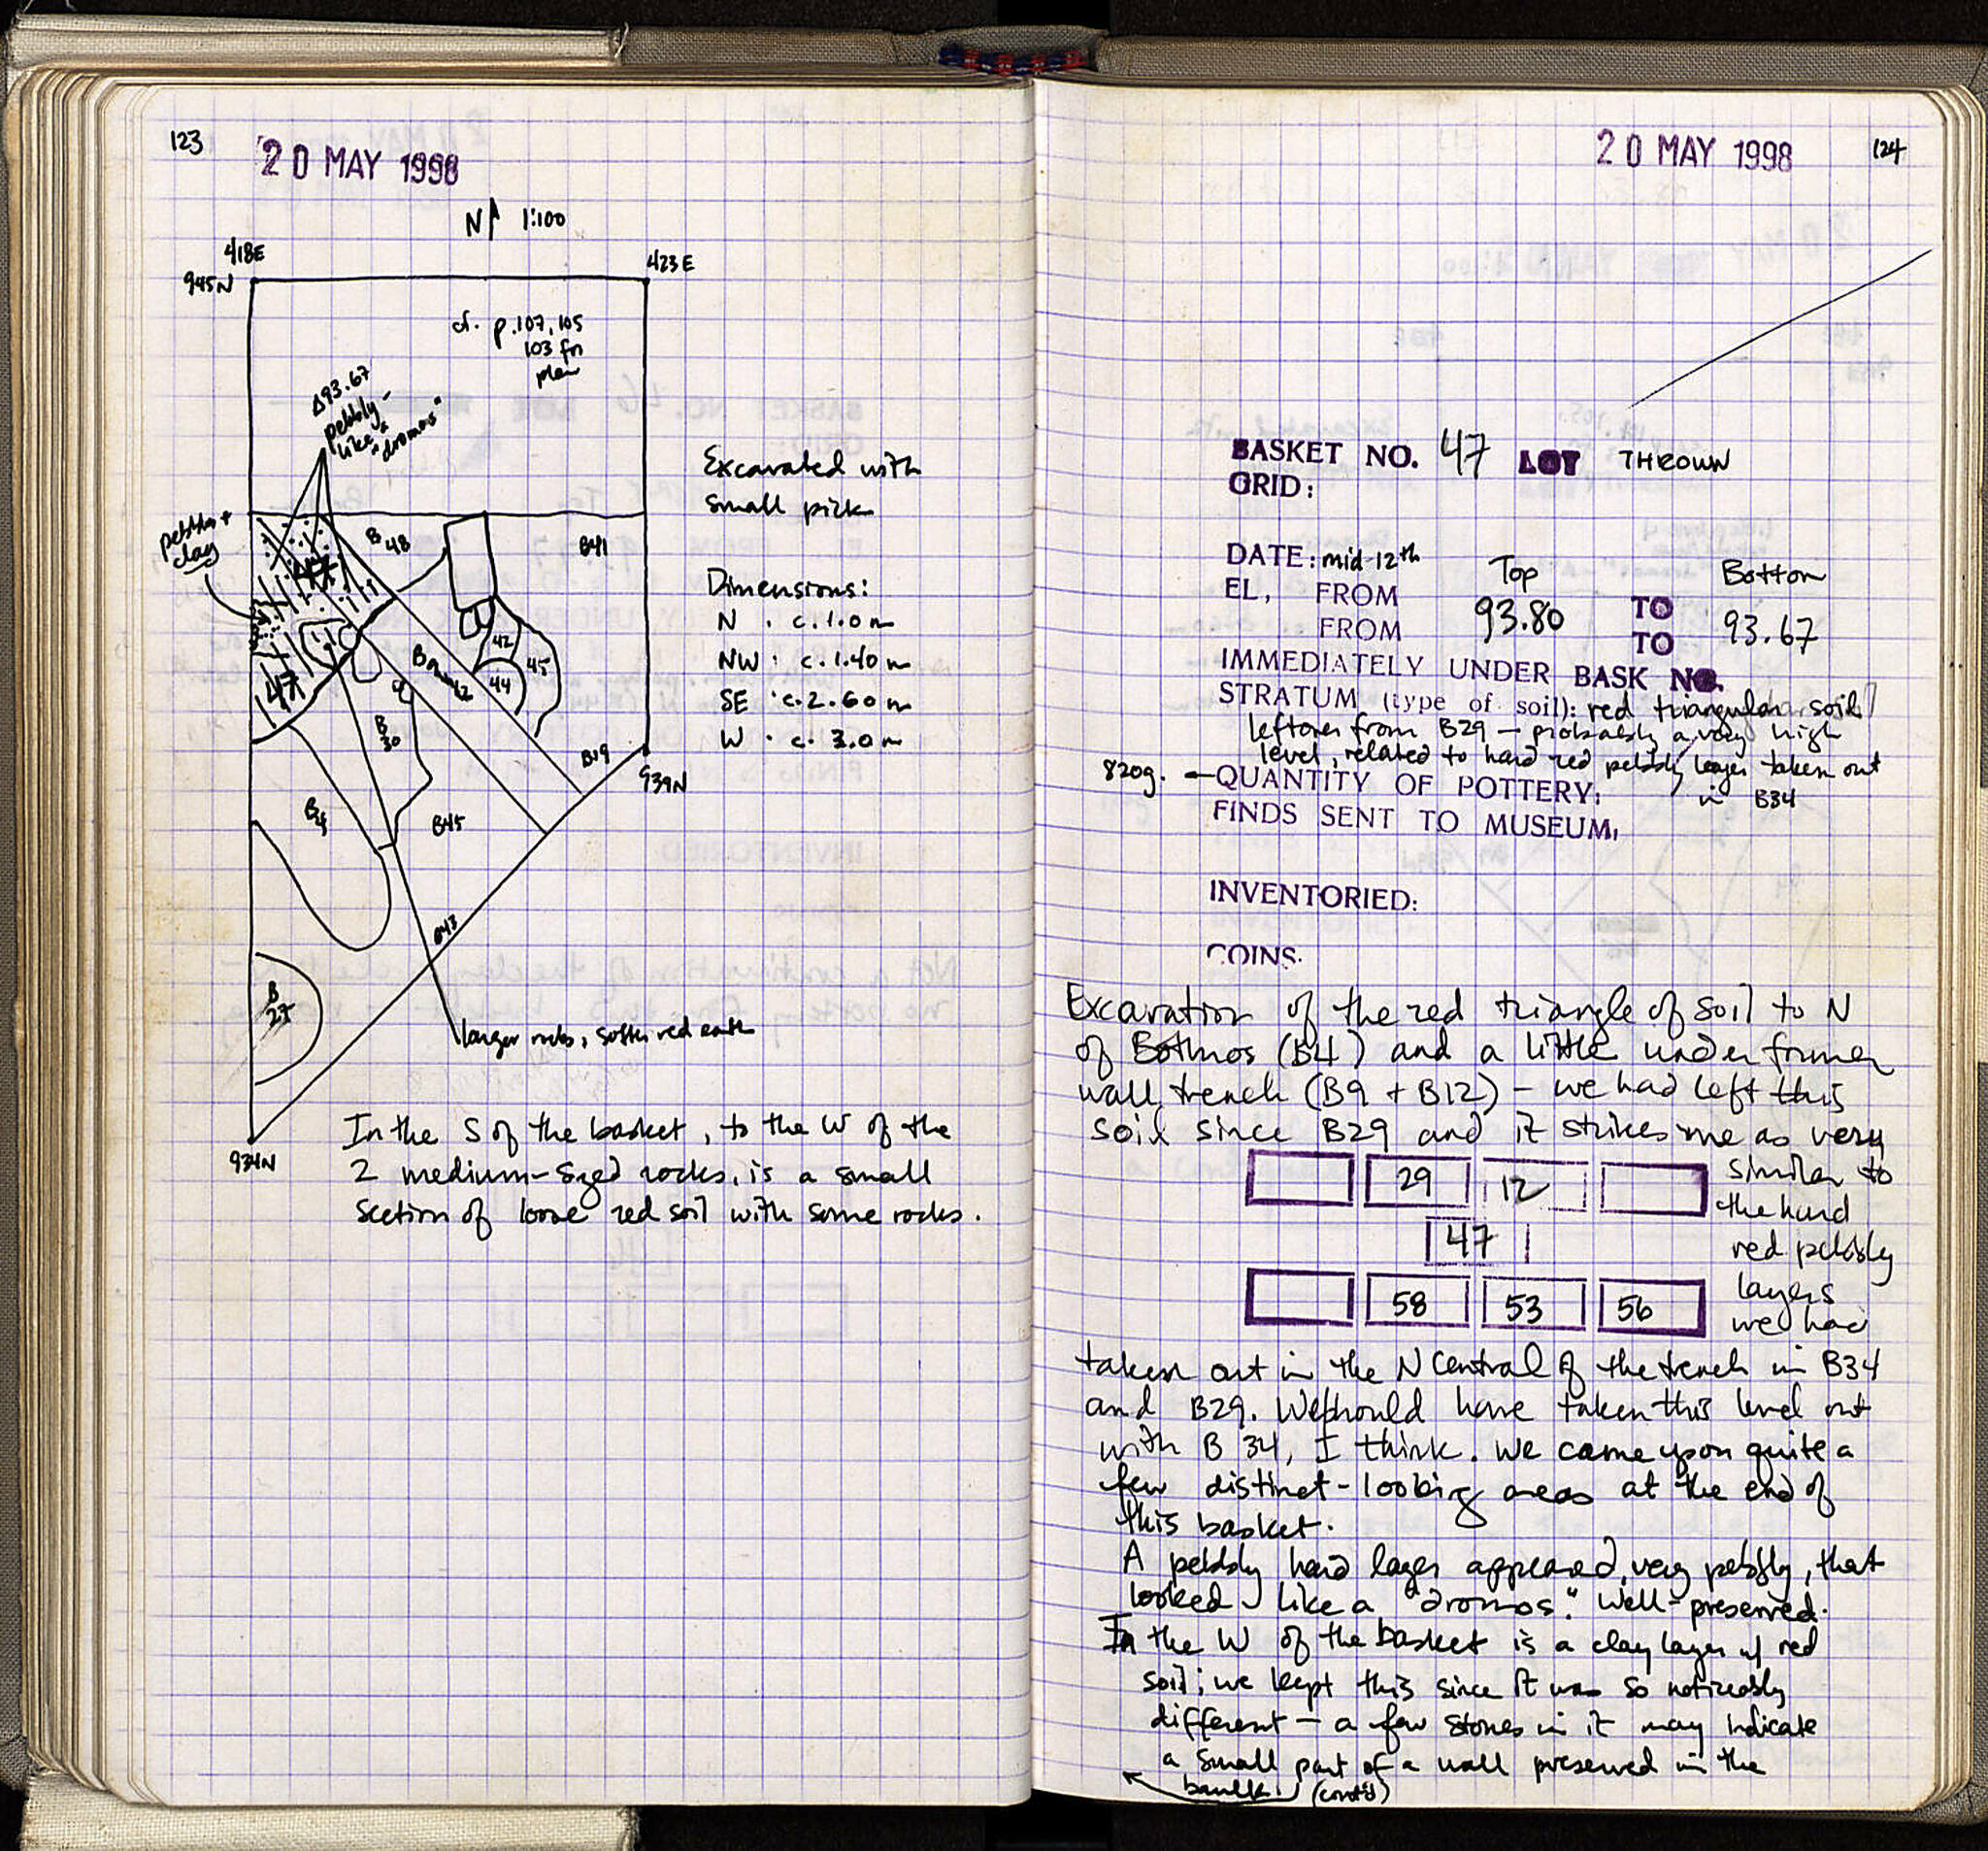 123
20 MAY 1998
N 1:100
418E
423E
945N
cf. p.107, 105
103 for
plan
Δ93.67
pebbly -
like a
"dromos"
Excavated with
small pick
pebbles +
clay
B
48
B41
Dimensions:
N : c. 1.0 m
NW : c. 1.40 m
SE : c. 2.60 m
W : c. 3.0 m
42
45
44
B9
12
47
B
30
B19
939N
B
4
B45
B43
B
27
larger rocks, softer red earth
934N
In the S of the basket, to the W of the
2 medium-sized rocks, is a small
section of loose red soil with some rocks.
20 MAY 1998
124
BASKET NO. 47 LOT THROWN
GRID:
DATE: mid-12th
Top Bottom
EL, FROM 93.80 TO 93.67
FROM TO
IMMEDIATELY UNDER BASK NO.
STRATUM (type of soil): red triangular soil
leftover from B29 – probably a very high
level, related to hard red pebbly layer taken out
in B34
820g. — QUANTITY OF POTTERY:
FINDS SENT TO MUSEUM,
INVENTORIED:
COINS.
Excavation of the red triangle of soil to N
of Bothros (B4) and a little under former
wall trench (B9 + B12) – we had left this
soil since B29 and it strikes me as very
similar to
the hard
red pebbly
layers
we had
29 12
47
58 53 56
taken out in the N Central of the trench in B34
and B29. We should have taken this level out
with B 34, I think. We came upon quite a
few distinct-looking areas at the end of
this basket.
A pebbly hard layer appeared, very pebbly, that
looked like a "dromos." Well-preserved.
In the W of the basket is a clay layer w/ red
soil; we kept this since it was so noticeably
different – a few stones in it may indicate
a small part of a wall preserved in the
baulk. (cont'd)